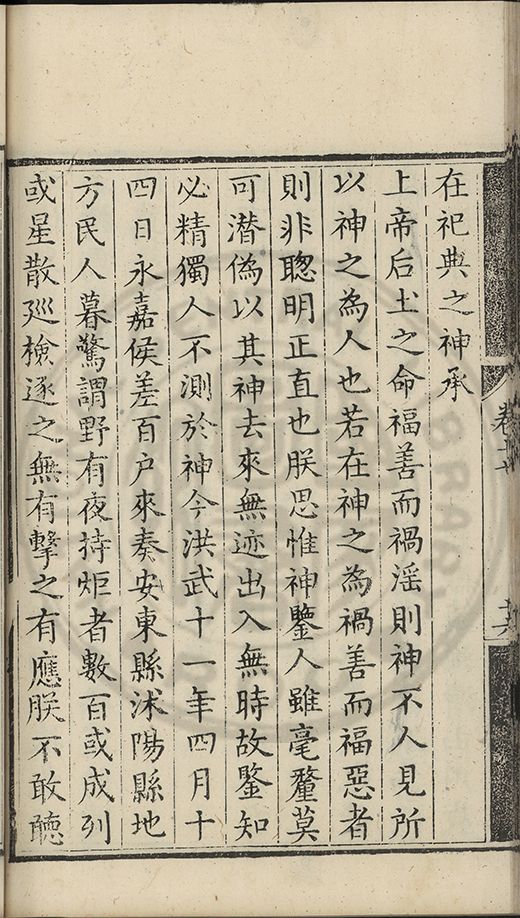 在祀典之神承
上帝后土之命福善而禍淫則神不人見所
以神之為人也若在神之為禍善而福惡者
則非聦明正直也朕思惟神鑒人雖毫釐莫
可潜偽以其神去來無迹出入無時故鑒知
必精獨人不測於神今洪武十一年四月十
四日永嘉侯差百户來奏安東縣沭陽縣地
方民人暮驚謂野有夜持炬者數百或成列
或星散廵檢逐之無有擊之有應朕不敢聽